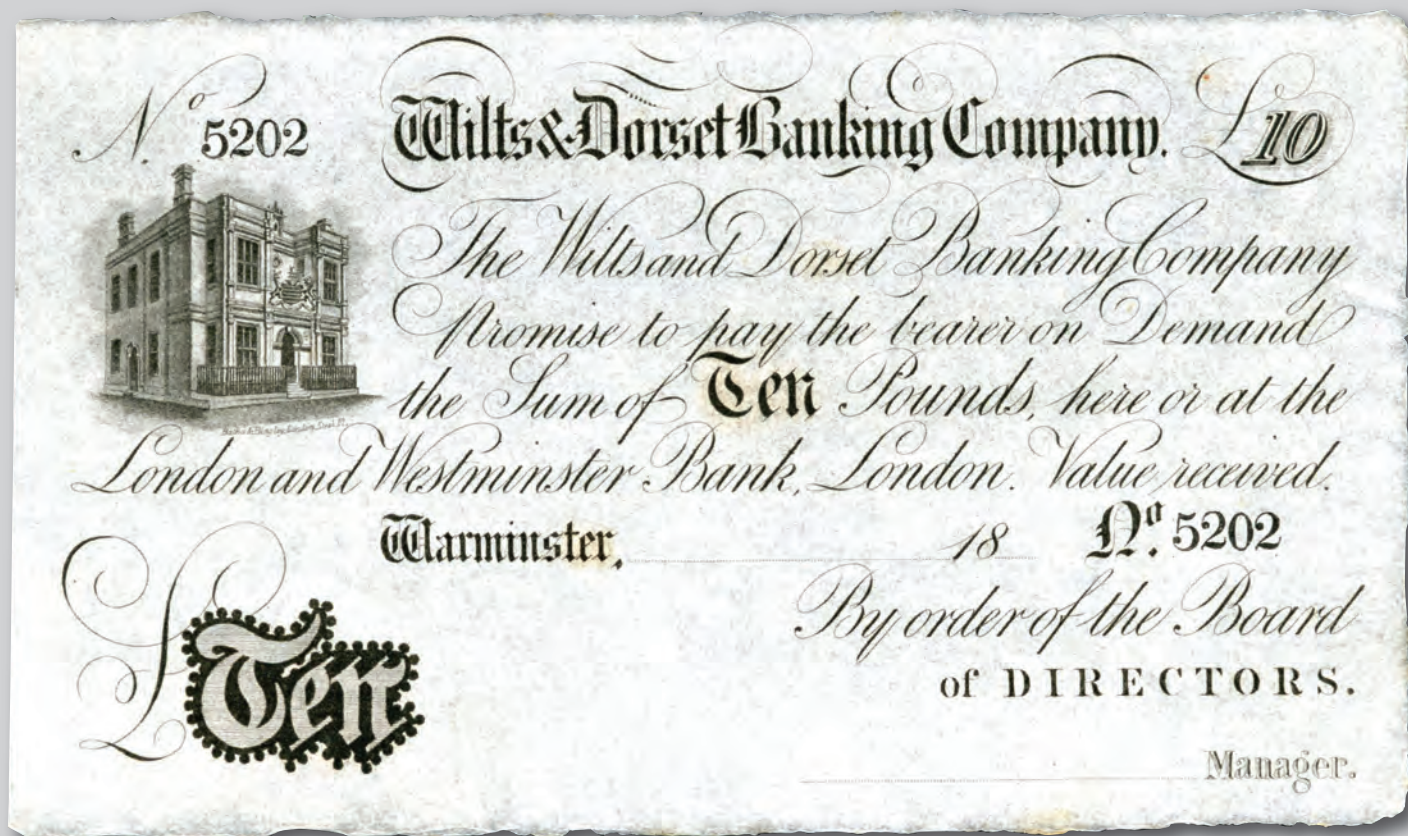 Nº 5202 Wilts & Dorset Banking Company. £10
The Wilts and Dorset Banking Company
Promise to pay the bearer on Demand
the Sum of Ten Pounds, here or at the
London and Westminster Bank, London. Value received.
Warminster, 18 Nº 5202
By order of the Board
of DIRECTORS.
£Ten
Manager.